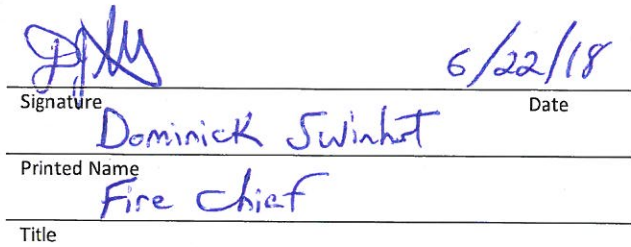 6/22/18
Signature Date
Dominick Swinhart
Printed Name
Fire Chief
Title